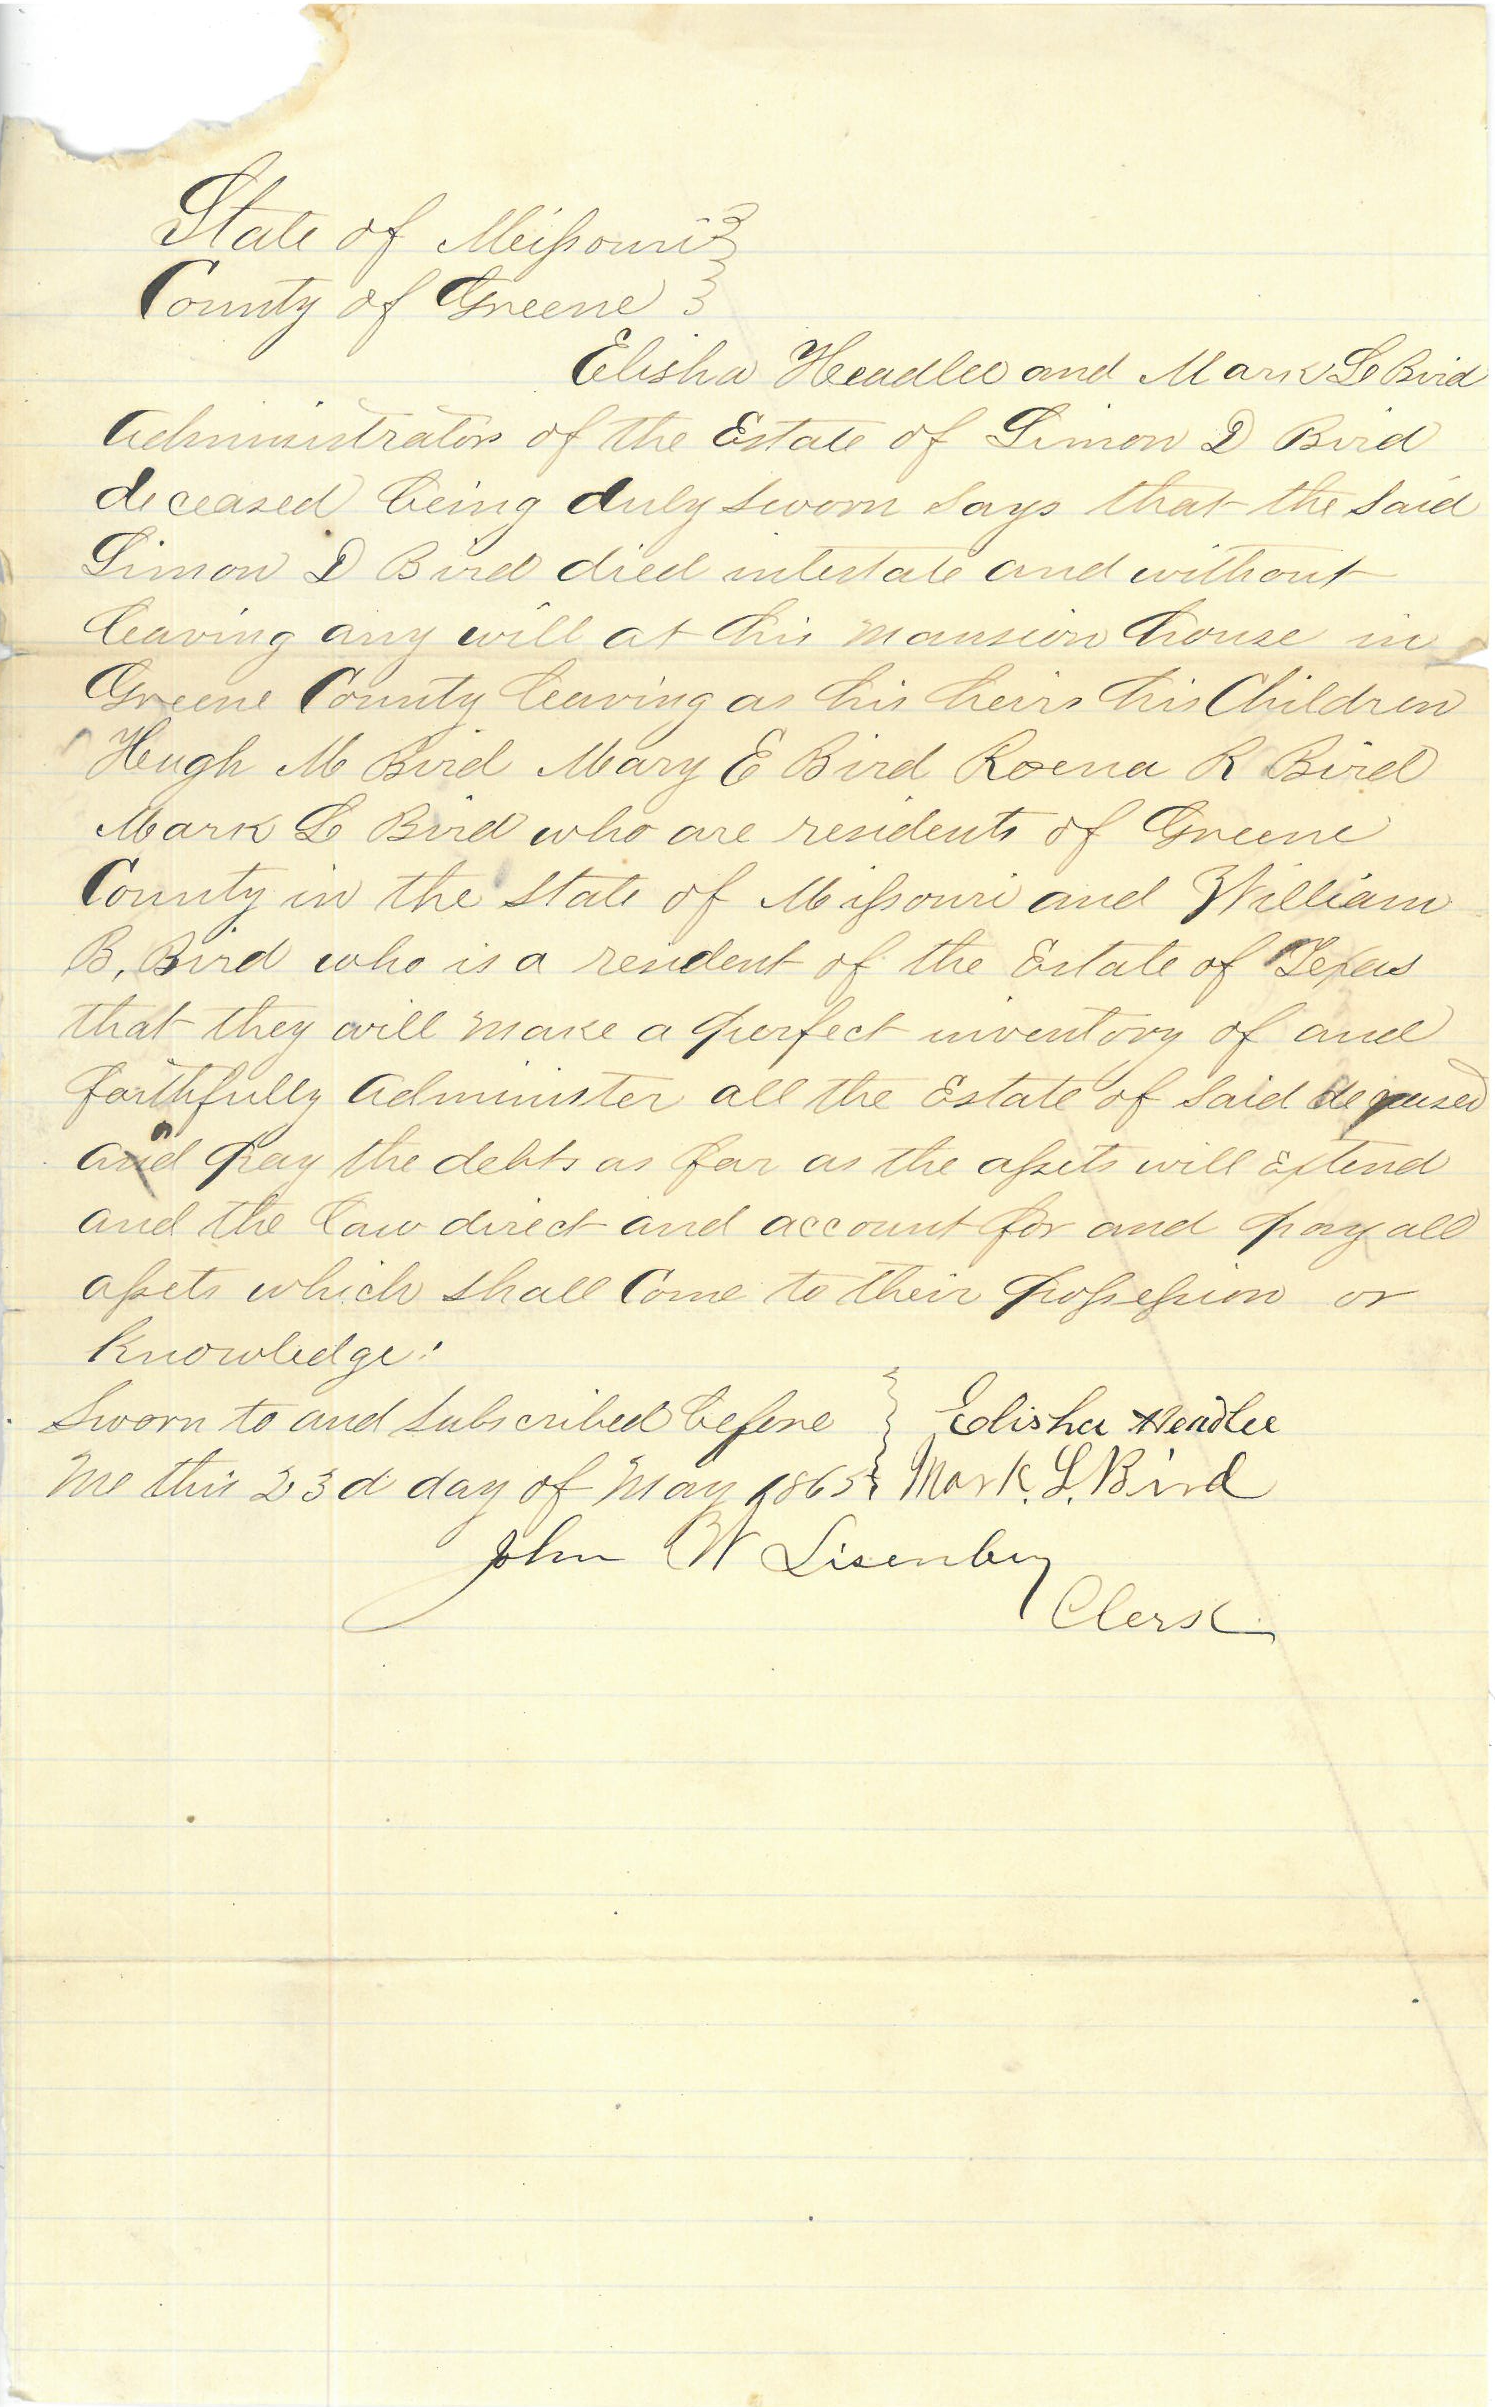 State of Meissouri }
County of Greene }
Elisha Headlee and Mark L Bird
Administrators of the Estate of Simon D Bird
deceased being duly sworn says that the said
Simon D Bird died intestate and without
leaving any will at his mansion house in
Greene County leaving as his heirs his Children
Hugh M Bird Mary E Bird Roena R Bird
Mark L Bird who are residents of Greene
County in the State of Missouri and William
B. Bird who is a resident of the Estate of Texas
that they will make a perfect inventory of and
faithfully Administer all the Estate of said deceased
and pay the debts as far as the assets will extend
and the law direct and account for and pay all
assets which shall Come to their possession or
knowledge:
Sworn to and subscribed before } Elisha Headlee
me this 23d day of May 1865 } Mark. L. Bird
John W Lisenbey
Clerk